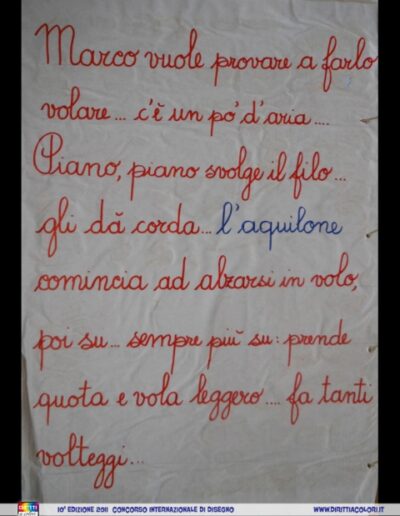 Marco vuole provare a farlo
volare... c'è un pò d'aria....
Piano, piano svolge il filo...
gli dà corda... l'aquilone
comincia ad alzarsi in volo,
poi su... sempre più su: prende
quota e vola leggero.... fa tanti
volteggi...
10° EDIZIONE 2011 CONCORSO INTERNAZIONALE DI DISEGNO WWW.DIRITTIACOLORI.IT